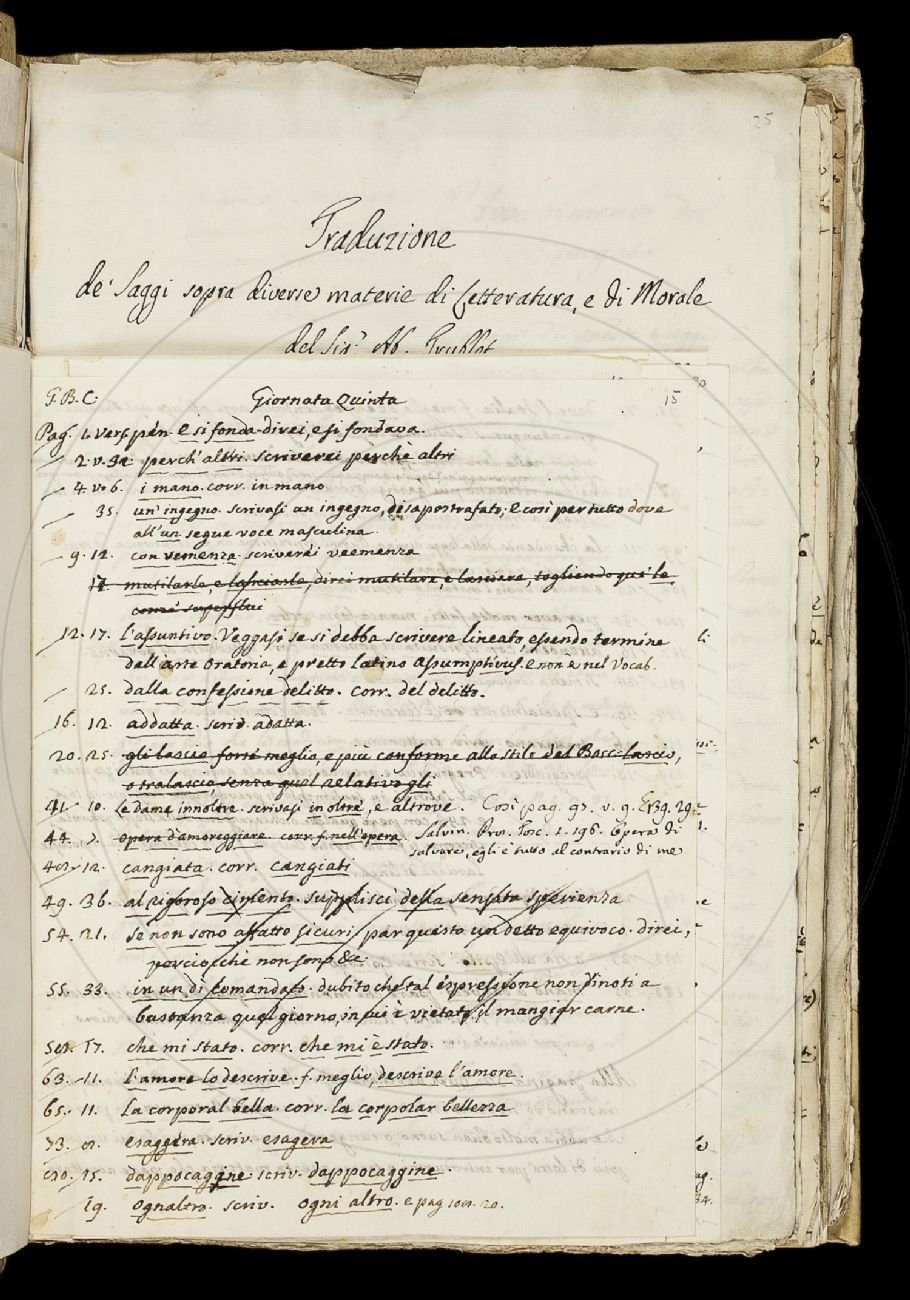 25
Traduzione
de' Saggi sopra diverse materie di Letteratura, e di Morale
del Sig.r Ab. Trublet
G. B. C. Giornata Quinta 15
Pag. 1. vers. pen. E si fonda direi, e si fondava.
2. v. 32 perch' altri. scriverei perchè altri
4. v. 6. i mano. corr. in mano
35. un' ingegno. scrivasi un ingegno, disapostrafato; E così per tutto dove
all'un segue voce masculina.
9. 12. con vemenza. scriverei veemenza
17. mutilarle, e lasciarle, direi mutilare, e lasciare, togliendo que' le
come superflui
12. 17. l'assuntivo. Veggasi se si debba scrivere lineato, essendo termine
dell'arte Oratoria, e pretto latino Assumptivus. e non è nel Vocab.
25. dalla confessione delitto. corr. del delitto.
16. 12. addatta. scriv. adatta.
20. 25. gli lascio forse meglio, e più conforme allo stile del Bocc. lascio,
o tralascio, senza quel relativo gli
41. 10. Le dame innoltre. scrivasi inoltre, e altrove. Così pag. 97. v. 9. E 139. 29.
44. 7. opera d'amoreggiare. corr. f. nell'opera. Salvin. Pros. Tosc. 1. 196. Opera di
salvare, egli è tutto al contrario di me
12. cangiata. corr. cangiati
49. 36. al rigoroso cimento. supplisci della sensata sperienza
54. 21. se non sono affatto sicuri, par questo un detto equivoco. direi,
perciò che non sono &c.
55. 33. in un dì comandato. dubito che tal espressione non dinoti a
bastanza quel giorno, in cui è vietato il mangiar carne.
17. che mi stato. corr. che mi è stato.
63. 11. l'amore lo descrive. f. meglio, descrive l'amore.
65. 11. la corporal bella. corr. la corpolar bellezza
73. esaggera. scriv. esagera
15. dappocagine scriv. dappocaggine.
19. ognaltro. scriv. ogni altro. e pag. 20.